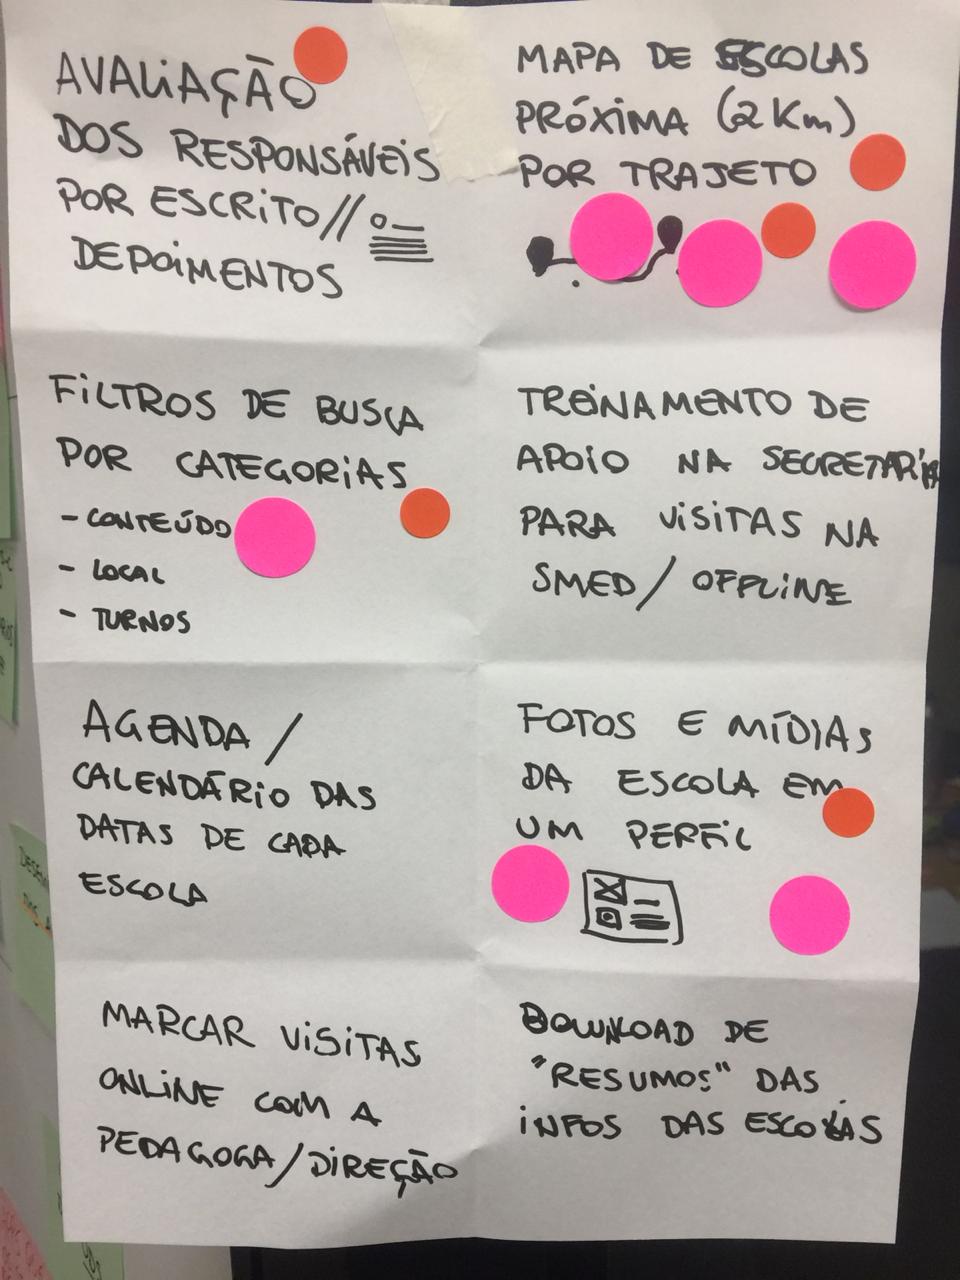 AVALIAÇÃO
DOS RESPONSÁVEIS
POR ESCRITO//
DEPOIMENTOS
MAPA DE ESCOLAS
PRÓXIMA (2 Km)
POR TRAJETO
FILTROS DE BUSCA
POR CATEGORIAS
- CONTEÚDO
- LOCAL
- TURNOS
TREINAMENTO DE
APOIO NA SECRETARIA
PARA VISITAS NA
SMED / OFFLINE
AGENDA /
CALENDÁRIO DAS
DATAS DE CADA
ESCOLA
FOTOS E MÍDIAS
DA ESCOLA EM
UM PERFIL
MARCAR VISITAS
ONLINE COM A
PEDAGOGA/DIREÇÃO
DOWNLOAD DE
"RESUMOS" DAS
INFOS DAS ESCOLAS